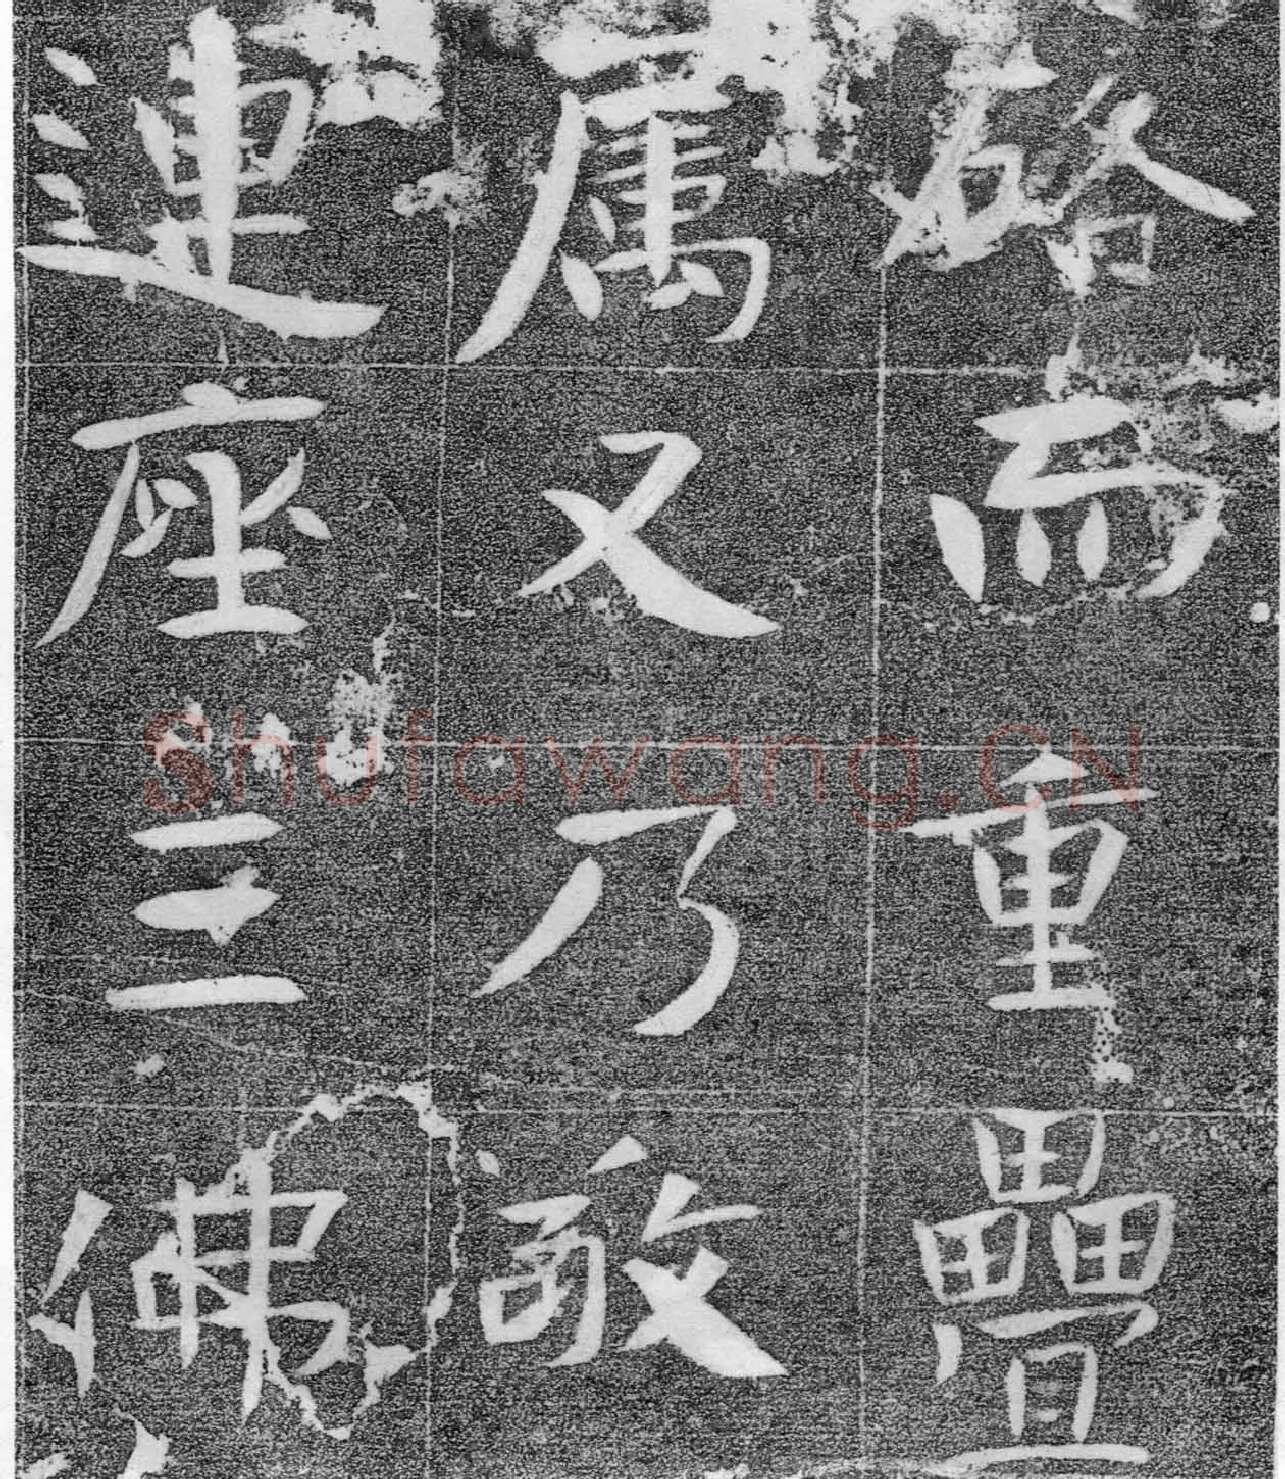 而重疊
属又乃敞
連座三佛
Shufawang.CN